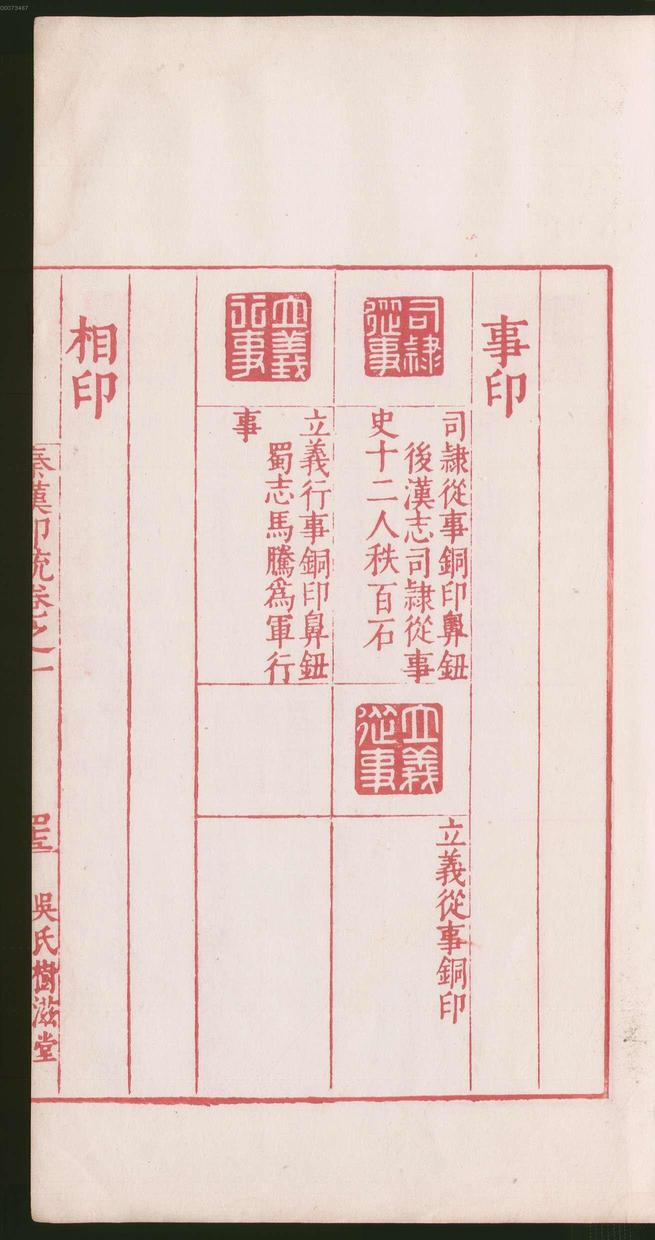 00073467
事印
司隸從事
司隸從事銅印鼻鈕
後漢志司隸從事
史十二人秩百石
立義從事
立義從事銅印
立義行事
立義行事銅印鼻鈕
蜀志馬騰為軍行
事
相印
秦漢印統卷之一
吳氏樹滋堂